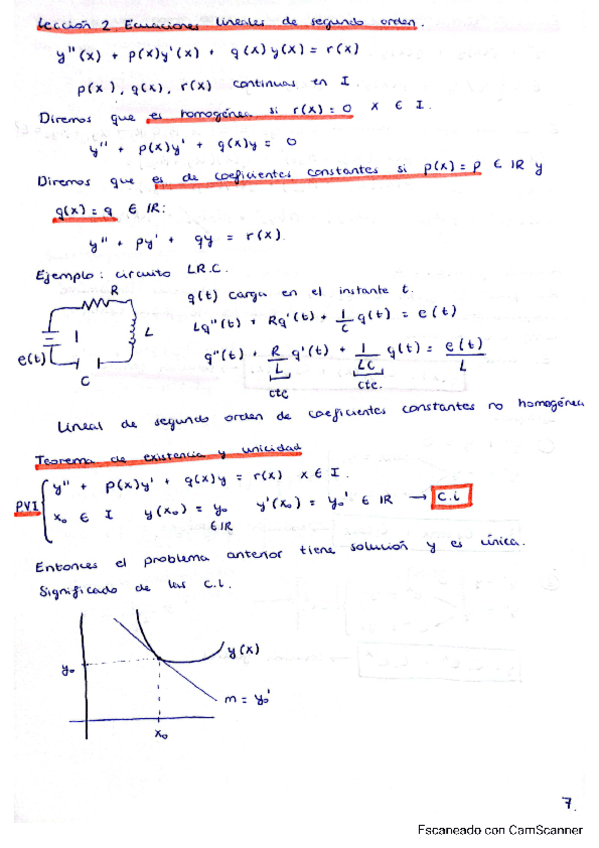 Lección 2. Ecuaciones lineales de segundo orden.
y''(x) + p(x)y'(x) + q(x)y(x) = r(x)
p(x), q(x), r(x) continuas en I.
Diremos que es homogénea si r(x) = 0 x ∈ I.
y'' + p(x)y' + q(x)y = 0
Diremos que es de coeficientes constantes si p(x) = p ∈ IR y
q(x) = q ∈ IR:
y'' + py' + qy = r(x)
Ejemplo: circuito LR.C.
R
L
e(t)
I
C
q(t) carga en el instante t.
Lq''(t) + Rq'(t) + 1/C q(t) = e(t)
q''(t) + R/L q'(t) + 1/LC q(t) = e(t)/L
ctc ctc.
Lineal de segundo orden de coeficientes constantes no homogénea
Teorema de existencia y unicidad
PVI { y'' + p(x)y' + q(x)y = r(x) x ∈ I.
x₀ ∈ I y(x₀) = y₀ y'(x₀) = y₀' ∈ IR → C.i
∈ IR
Entonces el problema anterior tiene solución y es única.
Significado de las C.I.
y(x)
y₀
m = y₀'
x₀
7.
Escaneado con CamScanner